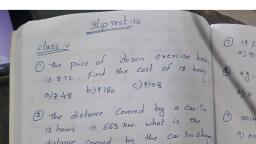 Slip Test-10
class-V
① The price of dozen exercise books
is ₹72 find the cost of 18 books
a) ₹48 b) ₹180 c) ₹108
② The distance covered by a car in
13 hours is 663 km. what is the
distance covered by the car in
⑦ 19
a)
⑧
a)
⑨
a)